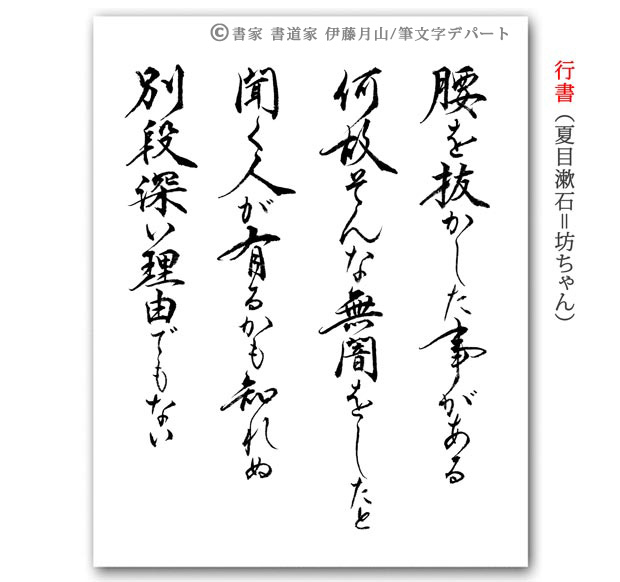 ©書家 書道家 伊藤月山/筆文字デパート
行書（夏目漱石＝坊ちゃん）
腰を抜かした事がある
何故そんな無闇をしたと
聞く人が有るかも知れぬ
別段深い理由でもない